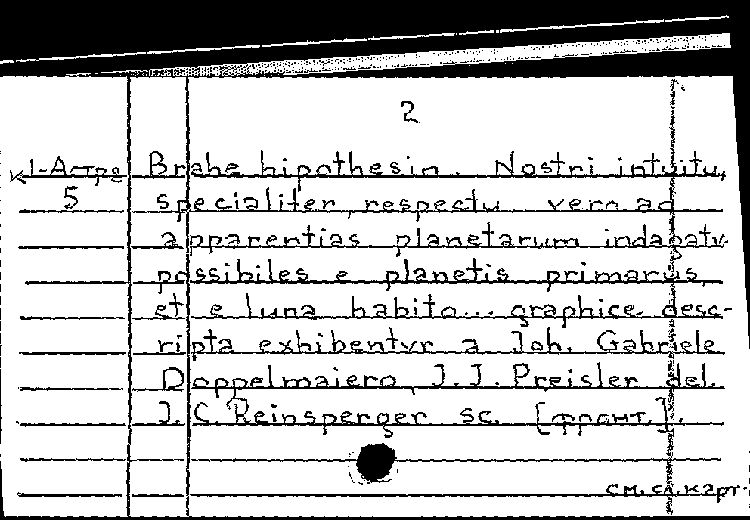 2
к 1-Астро Brahe hipothesin. Nostri intuitu,
5 specialiter, respectu vero ad
apparentias planetarum indagatu
possibiles e planetis primarus,
et e luna habito... graphice desc-
ripta exhibentvr a Joh. Gabriele
Doppelmaiero, J.J. Preisler del.
J.C. Reinsperger sc. [фронт.].
см. сл. карт.